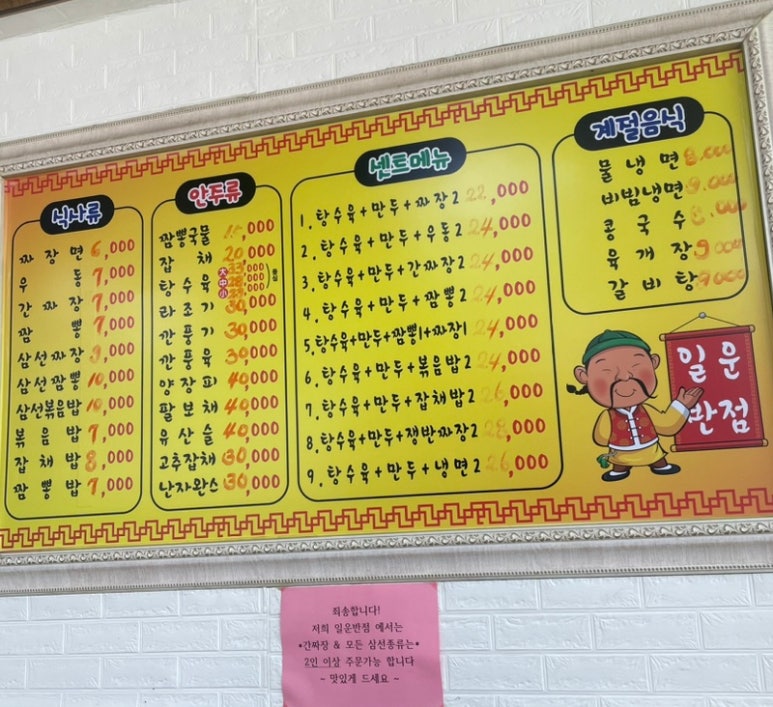 식사류
짜장면 6,000
우동 7,000
간짜장 7,000
짬뽕 7,000
삼선짜장 9,000
삼선짬뽕 10,000
삼선볶음밥 10,000
볶음밥 7,000
잡채밥 8,000
짬뽕밥 7,000
안주류
짬뽕국물 ,000
잡채 20,000
탕수육 大中小
라조기 30,000
깐풍기 30,000
깐풍육 30,000
양장피 40,000
팔보채 40,000
유산슬 40,000
고추잡채 30,000
난자완스 30,000
셋트메뉴
1. 탕수육+만두+짜장2 22,000
2. 탕수육+만두+우동2 24,000
3. 탕수육+만두+간짜장2 24,000
4. 탕수육+만두+짬뽕2 24,000
5. 탕수육+만두+짬뽕1+짜장1 24,000
6. 탕수육+만두+볶음밥2 24,000
7. 탕수육+만두+잡채밥2 26,000
8. 탕수육+만두+쟁반짜장2 28,000
9. 탕수육+만두+냉면2 26,000
계절음식
물냉면 8,000
비빔냉면 9,000
콩국수 8,000
육개장 9000
갈비탕 9000
일운
반점
죄송합니다!
저희 일운반점 에서는
*간짜장 & 모든 삼선종류는*
2인 이상 주문가능 합니다
~ 맛있게 드세요 ~